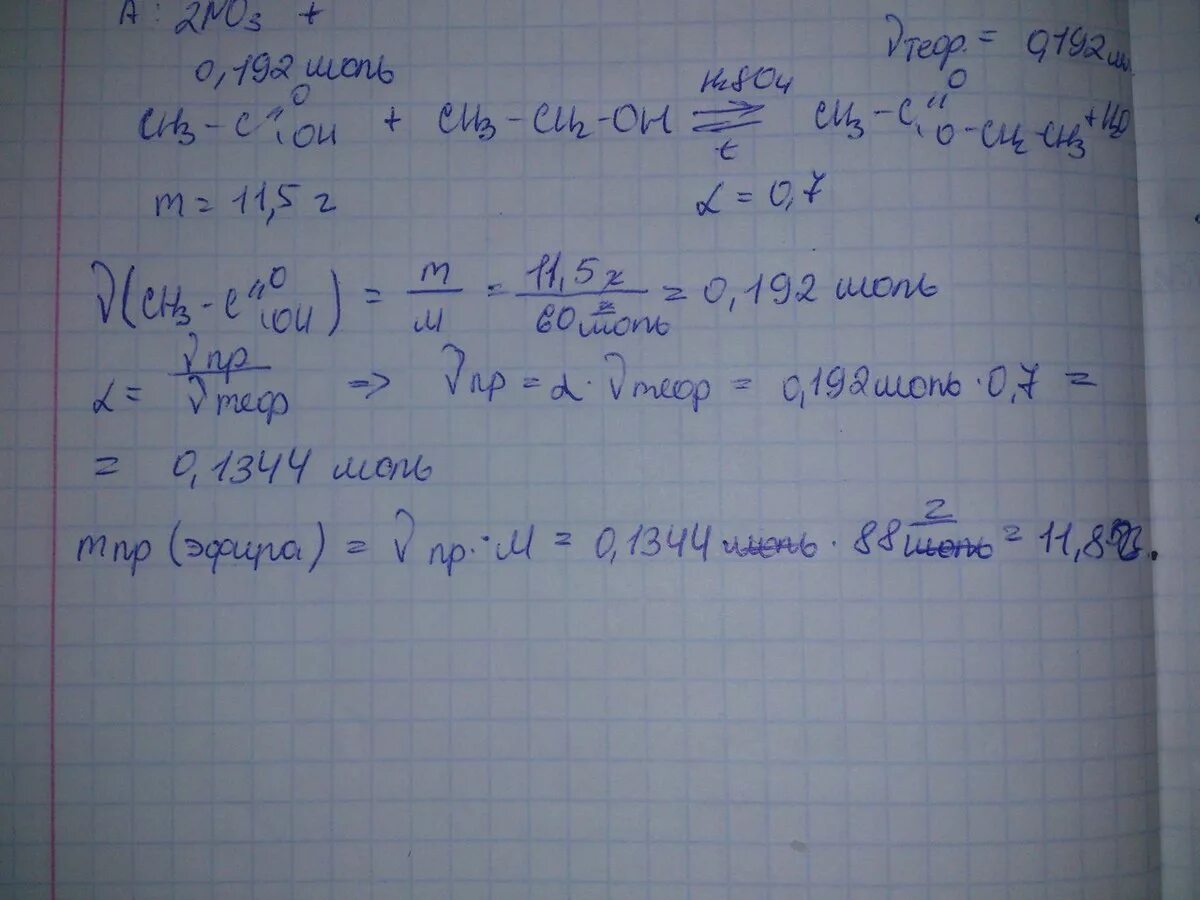 A: 2NO3 +
νтеор. = 0,192 м
0,192 моль
CH3 - C(=O)OH + CH3 - CH2 - OH ⇌ (H2SO4, t) CH3 - C(=O)O - CH2 - CH3 + H2O
m = 11,5 г
α = 0,7
ν(CH3 - C(=O)OH) = m/M = 11,5 г / 60 г/моль = 0,192 моль
α = νпр / νтеор => νпр = α · νтеор = 0,192 моль · 0,7 =
= 0,1344 моль
mпр (эфира) = νпр. · M = 0,1344 моль · 88 г/моль = 11,8